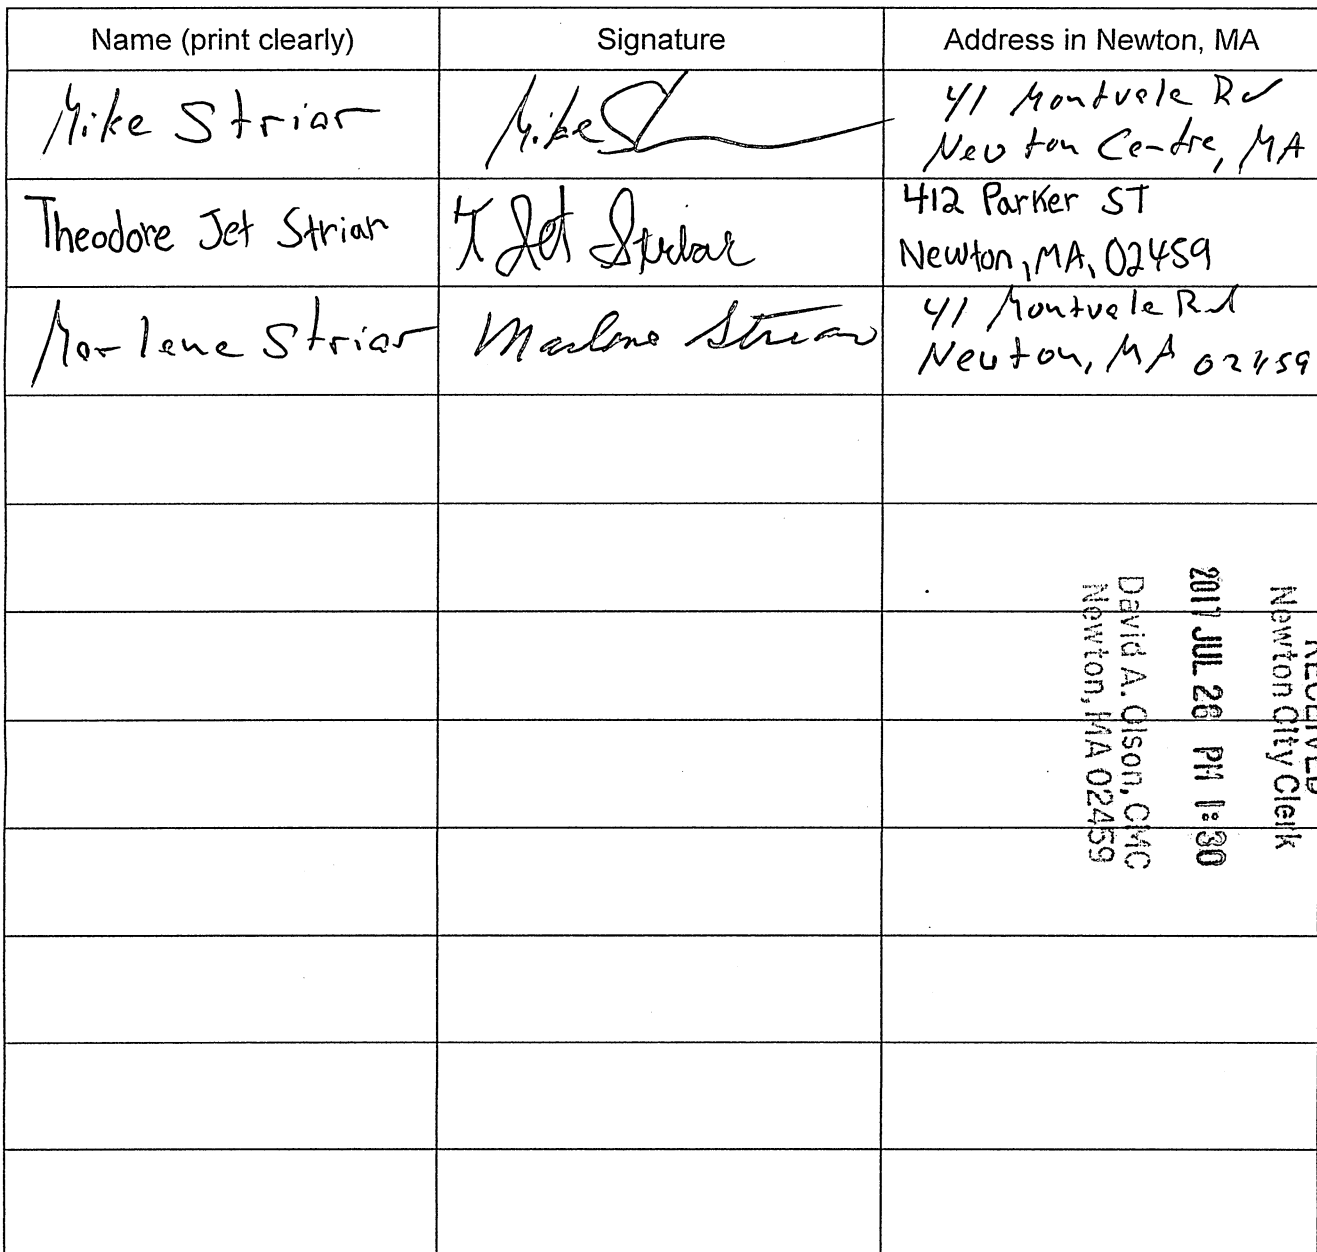 Name (print clearly) Signature Address in Newton, MA
Mike Striar Mike S 41 Montvale Rd
Newton Centre, MA
Theodore Jet Striar T Jet Striar 412 Parker ST
Newton, MA, 02459
Marlene Striar Marlene Striar 41 Montvale Rd
Newton, MA 02459
RECEIVED
Newton City Clerk
2017 JUL 26 PM 1:30
David A. Olson, CMC
Newton, MA 02459